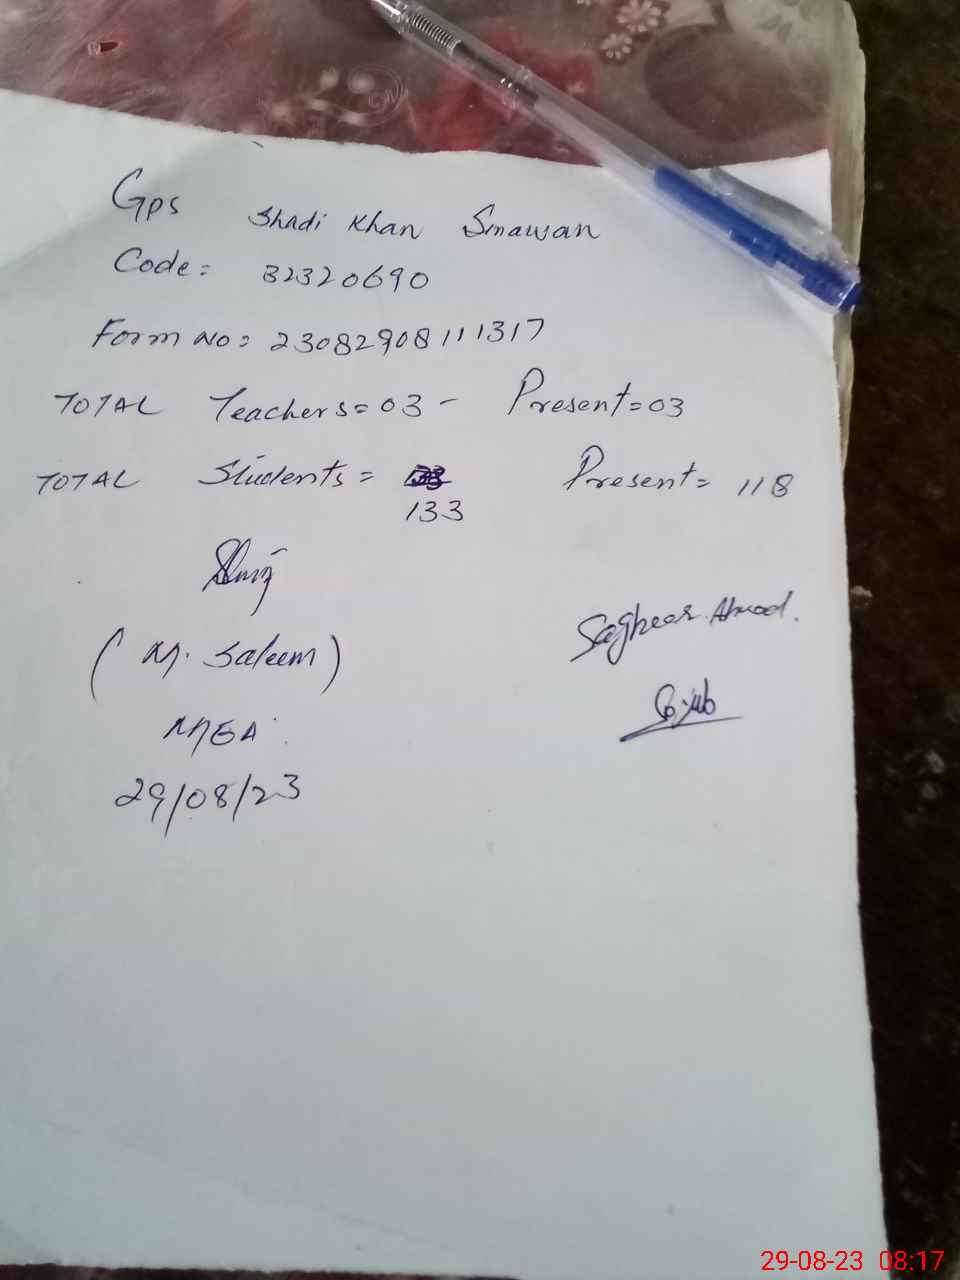 GPS Shadi Khan Sinawan
Code: 32320690
Form No: 23082908111317
TOTAL Teachers = 03 - Present = 03
TOTAL Students = 133 Present = 118
(M. Saleem)
Sagheer Ahmad.
MEA
29/08/23
29-08-23 08:17